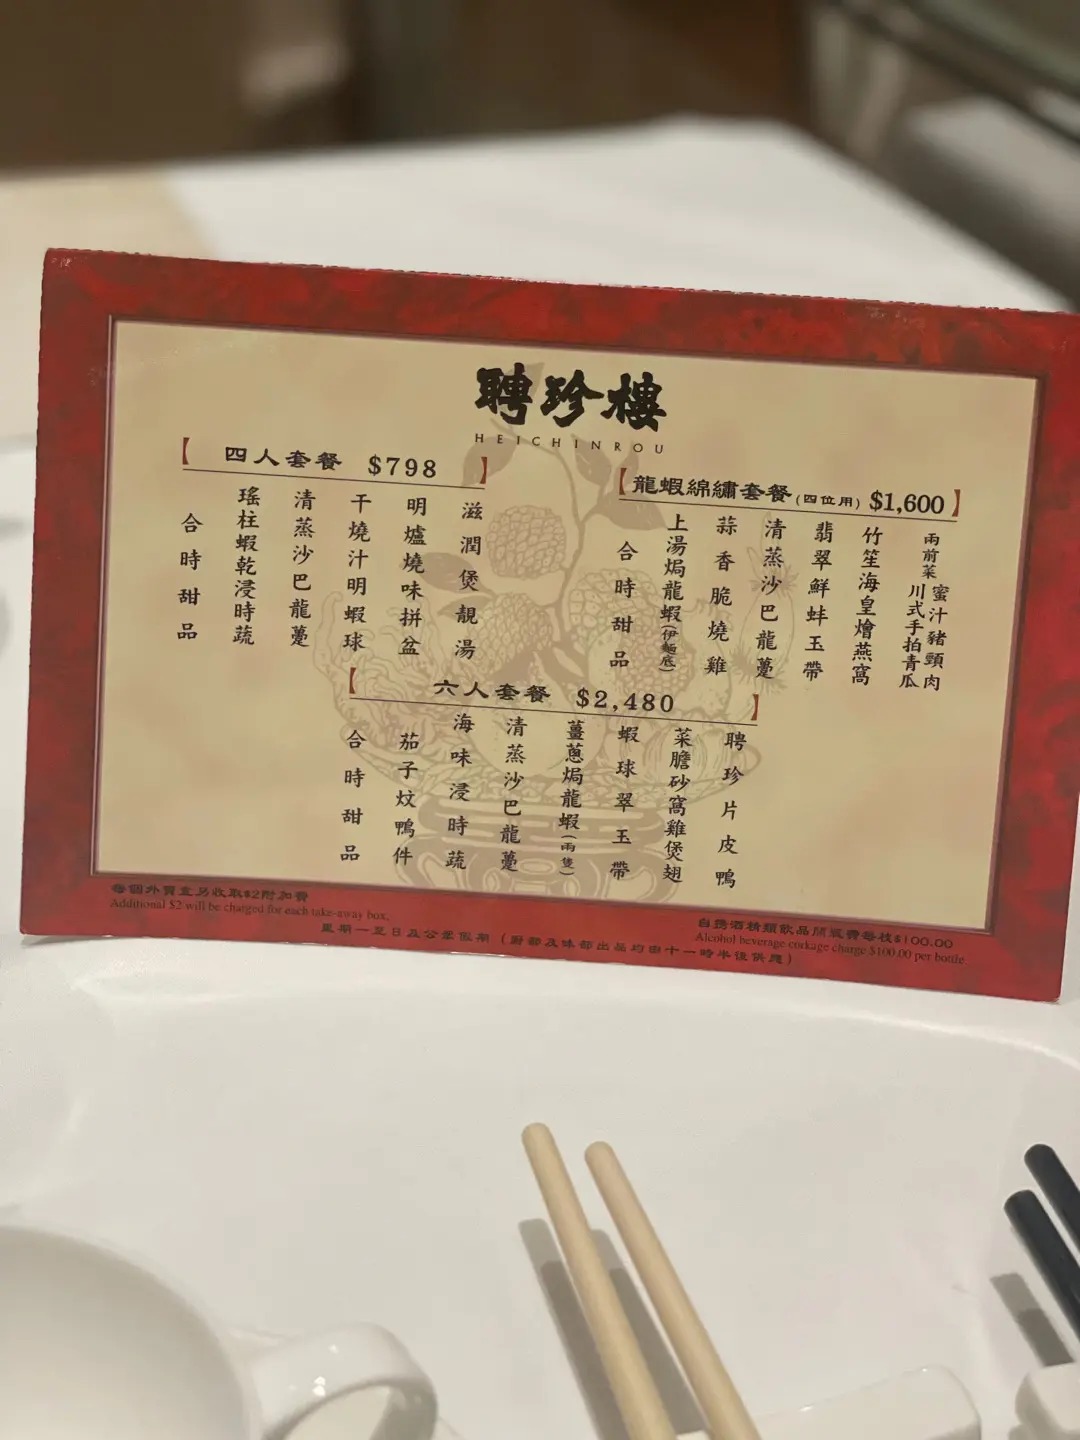 聘珍樓
HEICHINROU
四人套餐 $798
滋潤煲靚湯
明爐燒味拼盆
干燒汁明蝦球
清蒸沙巴龍躉
瑤柱蝦乾浸時蔬
合時甜品
龍蝦綿繡套餐(四位用) $1,600
兩前菜
蜜汁豬頸肉
川式手拍青瓜
竹笙海皇燴燕窩
翡翠鮮蚌玉帶
清蒸沙巴龍躉
蒜香脆燒雞
上湯焗龍蝦(伊麵底)
合時甜品
六人套餐 $2,480
聘珍片皮鴨
菜膽砂窩雞煲翅
蝦球翠玉帶
薑蔥焗龍蝦(兩隻)
清蒸沙巴龍躉
海味浸時蔬
茄子炆鴨件
合時甜品
每個外賣盒另收取$2附加費
Additional $2 will be charged for each take-away box.
自携酒精類飲品開瓶費每枝$100.00
Alcohol beverage corkage charge $100.00 per bottle
星期一至日及公眾假期(廚部及味部出品均由十一時半後供應)